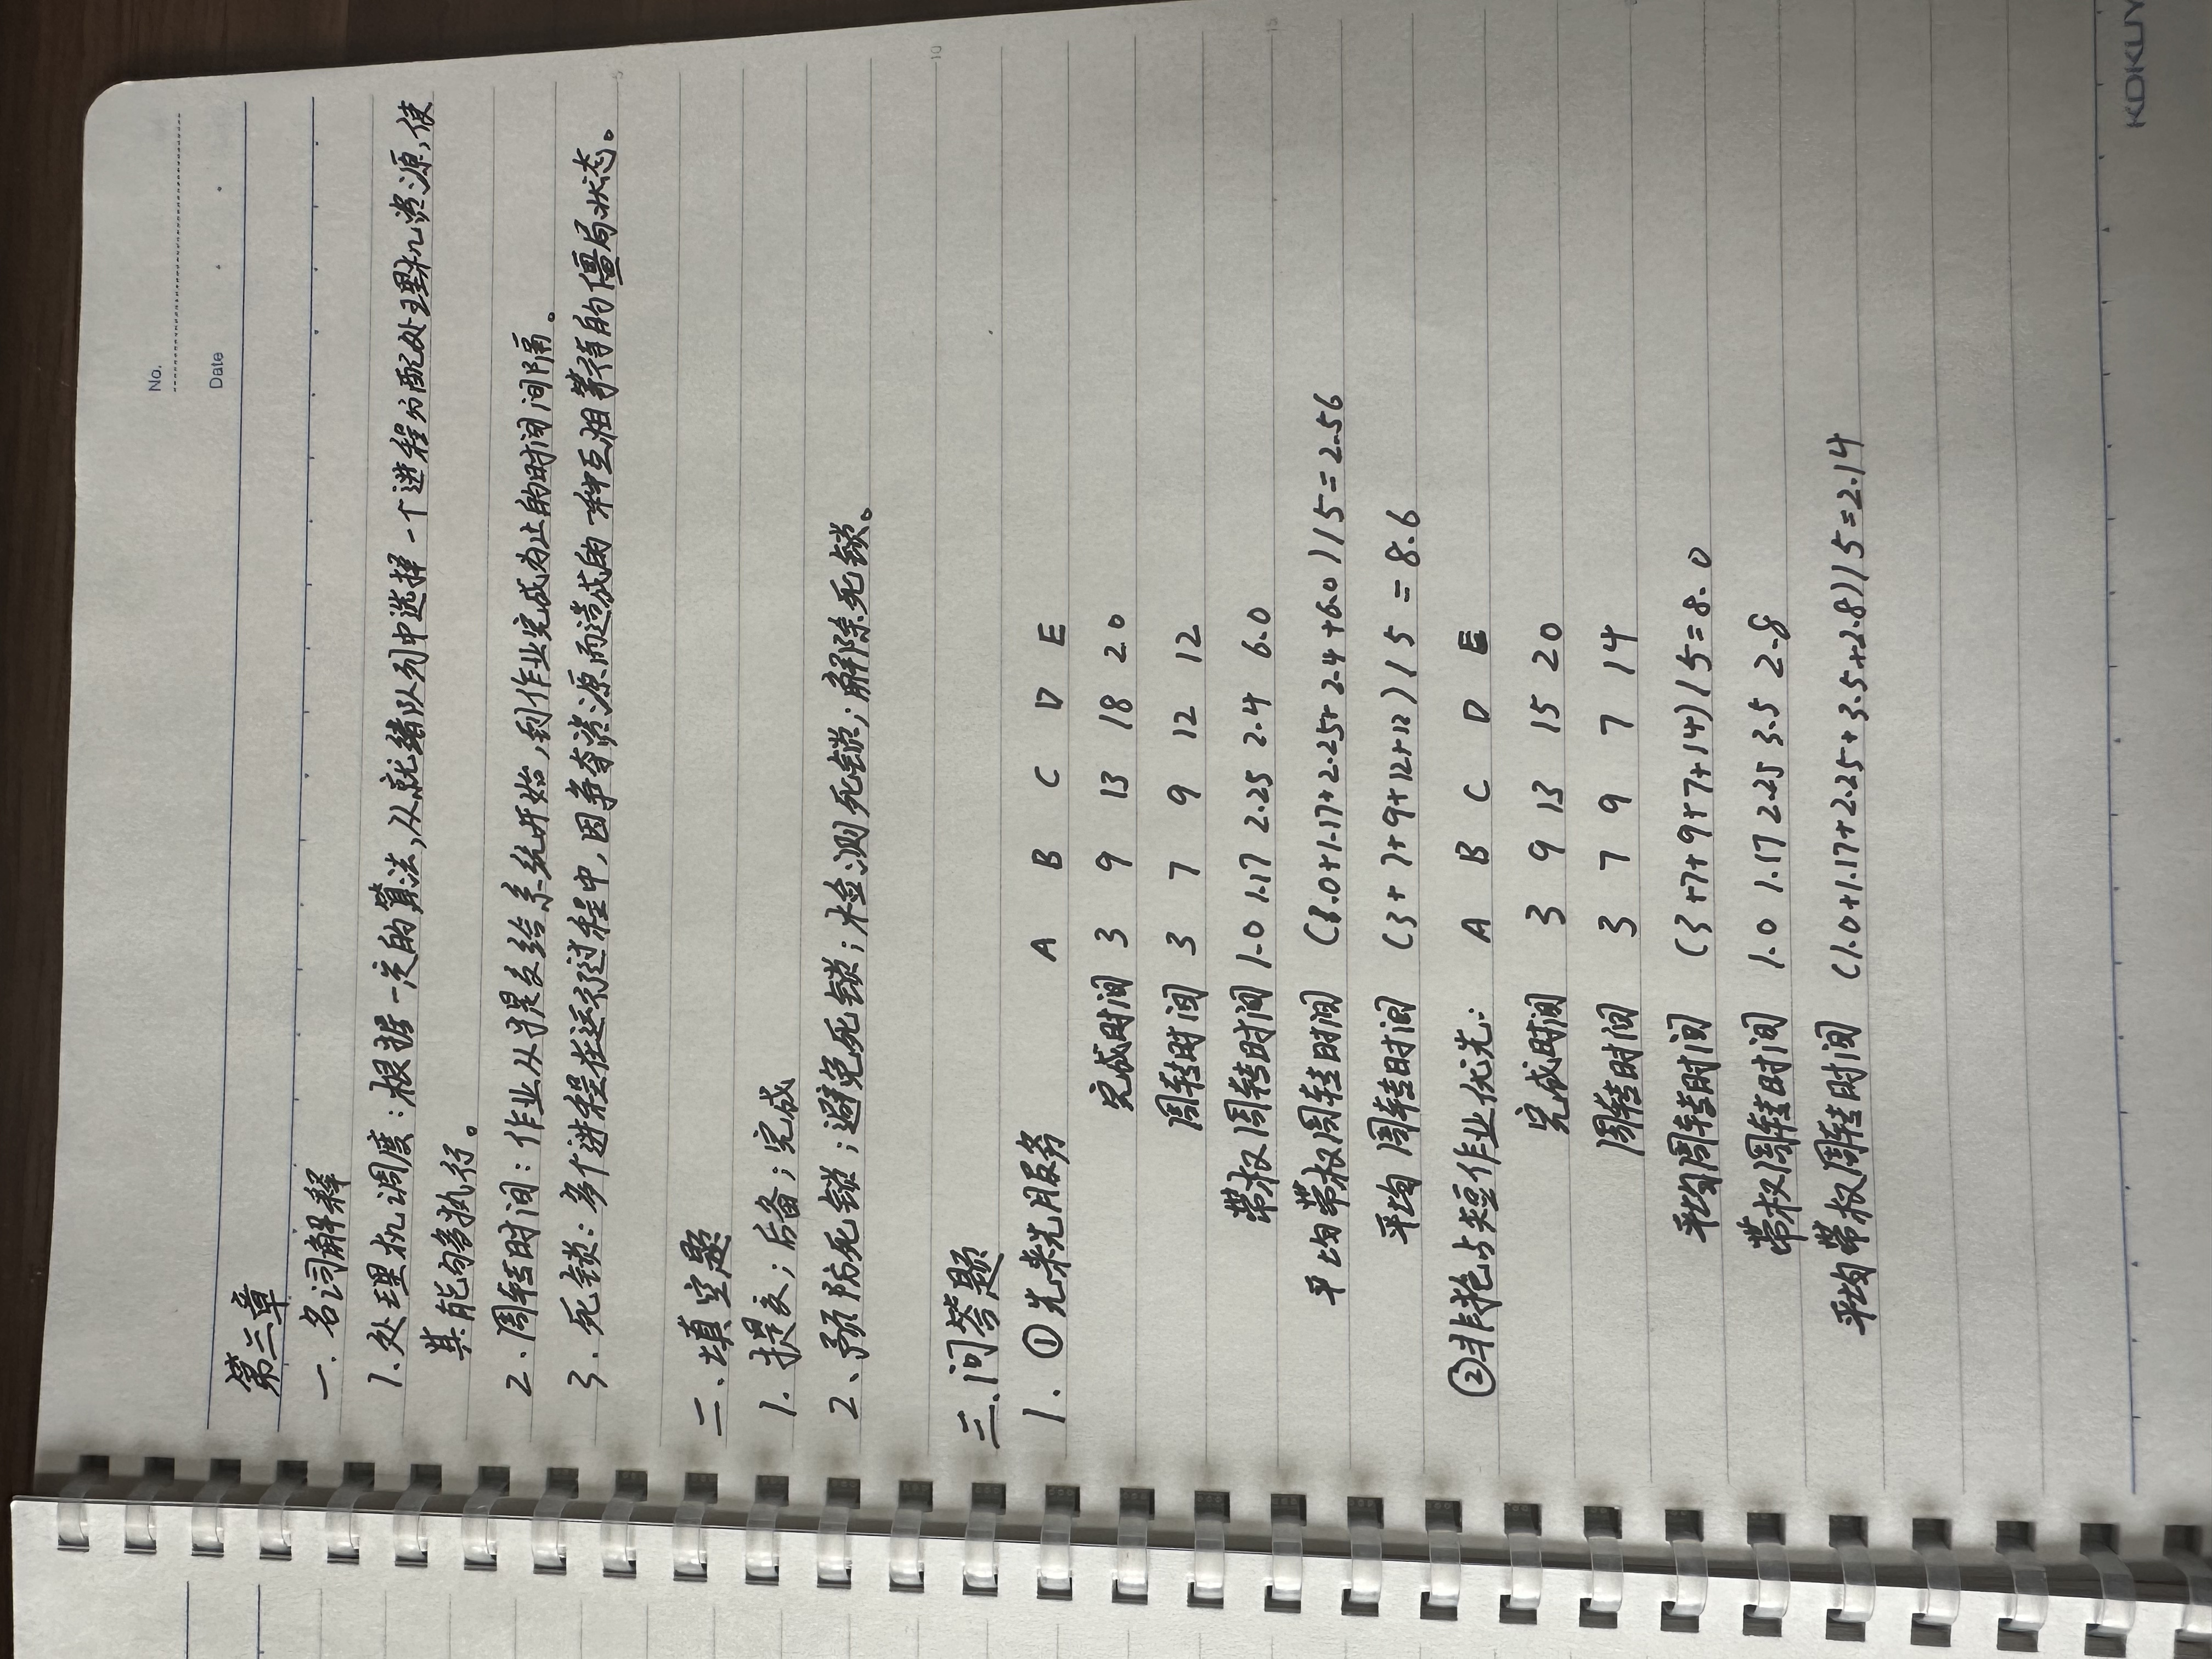 No.
Date
第三章
一.名词解释
1.处理机调度:根据一定的算法,从就绪队列中选择一个进程分配处理机资源,使
其能够执行。
2.周转时间:作业从提交给系统开始,到作业完成为止的时间间隔。
3.死锁:多个进程在运行过程中,因争夺资源而造成的一种互相等待的僵局状态。
5
二、填空题
1.提交;后备;完成
2、预防死锁;避免死锁;检测死锁;解除死锁。
10
三.问答题
1. ①先来先服务 A B C D E
完成时间 3 9 13 18 20
周转时间 3 7 9 12 12
带权周转时间 1.0 1.17 2.25 2.4 6.0
15
平均带权周转时间 (1.0+1.17+2.25+2.4+6.0)/5=2.56
平均周转时间 (3+7+9+12+12)/5=8.6
②非抢占短作业优先: A B C D E
完成时间 3 9 13 15 20
周转时间 3 7 9 7 14
平均周转时间 (3+7+9+7+14)/5=8.0
带权周转时间 1.0 1.17 2.25 3.5 2.8
平均带权周转时间 (1.0+1.17+2.25+3.5+2.8)/5=2.14
KOKUY